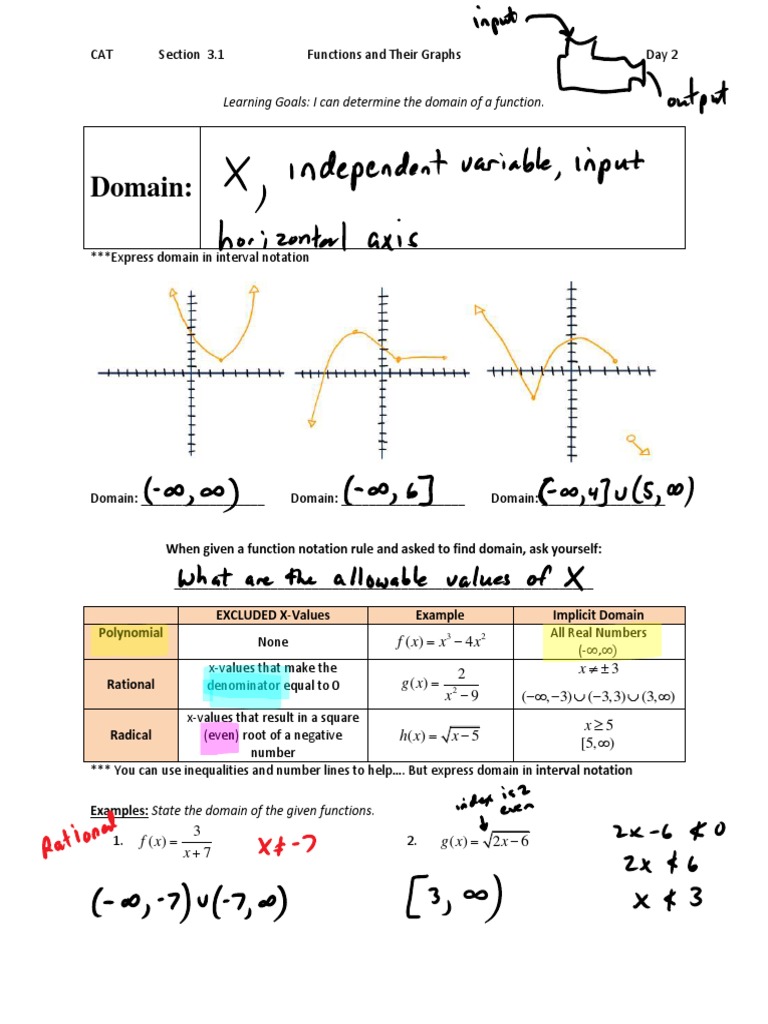 input
CAT Section 3.1 Functions and Their Graphs Day 2
output
Learning Goals: I can determine the domain of a function.
Domain: X, independent variable, input
horizontal axis
***Express domain in interval notation
Domain: (-∞, ∞) Domain: (-∞, 6] Domain: (-∞, 4] ∪ (5, ∞)
When given a function notation rule and asked to find domain, ask yourself:
What are the allowable values of X
EXCLUDED X-Values Example Implicit Domain
Polynomial None f(x) = x³ − 4x² All Real Numbers
(-∞,∞)
Rational x-values that make the
denominator equal to 0 g(x) = 2/(x² − 9) x ≠ ± 3
(−∞,−3)∪(−3,3)∪(3,∞)
Radical x-values that result in a square
(even) root of a negative
number h(x) = √(x−5) x ≥ 5
[5,∞)
*** You can use inequalities and number lines to help…. But express domain in interval notation
Examples: State the domain of the given functions.
index is 2
even
Rational 1. f(x) = 3/(x+7) X ≠ -7 2. g(x) = √(2x−6) 2x -6 ≮ 0
2x ≮ 6
(-∞, -7) ∪ (-7, ∞) [3, ∞) x ≮ 3